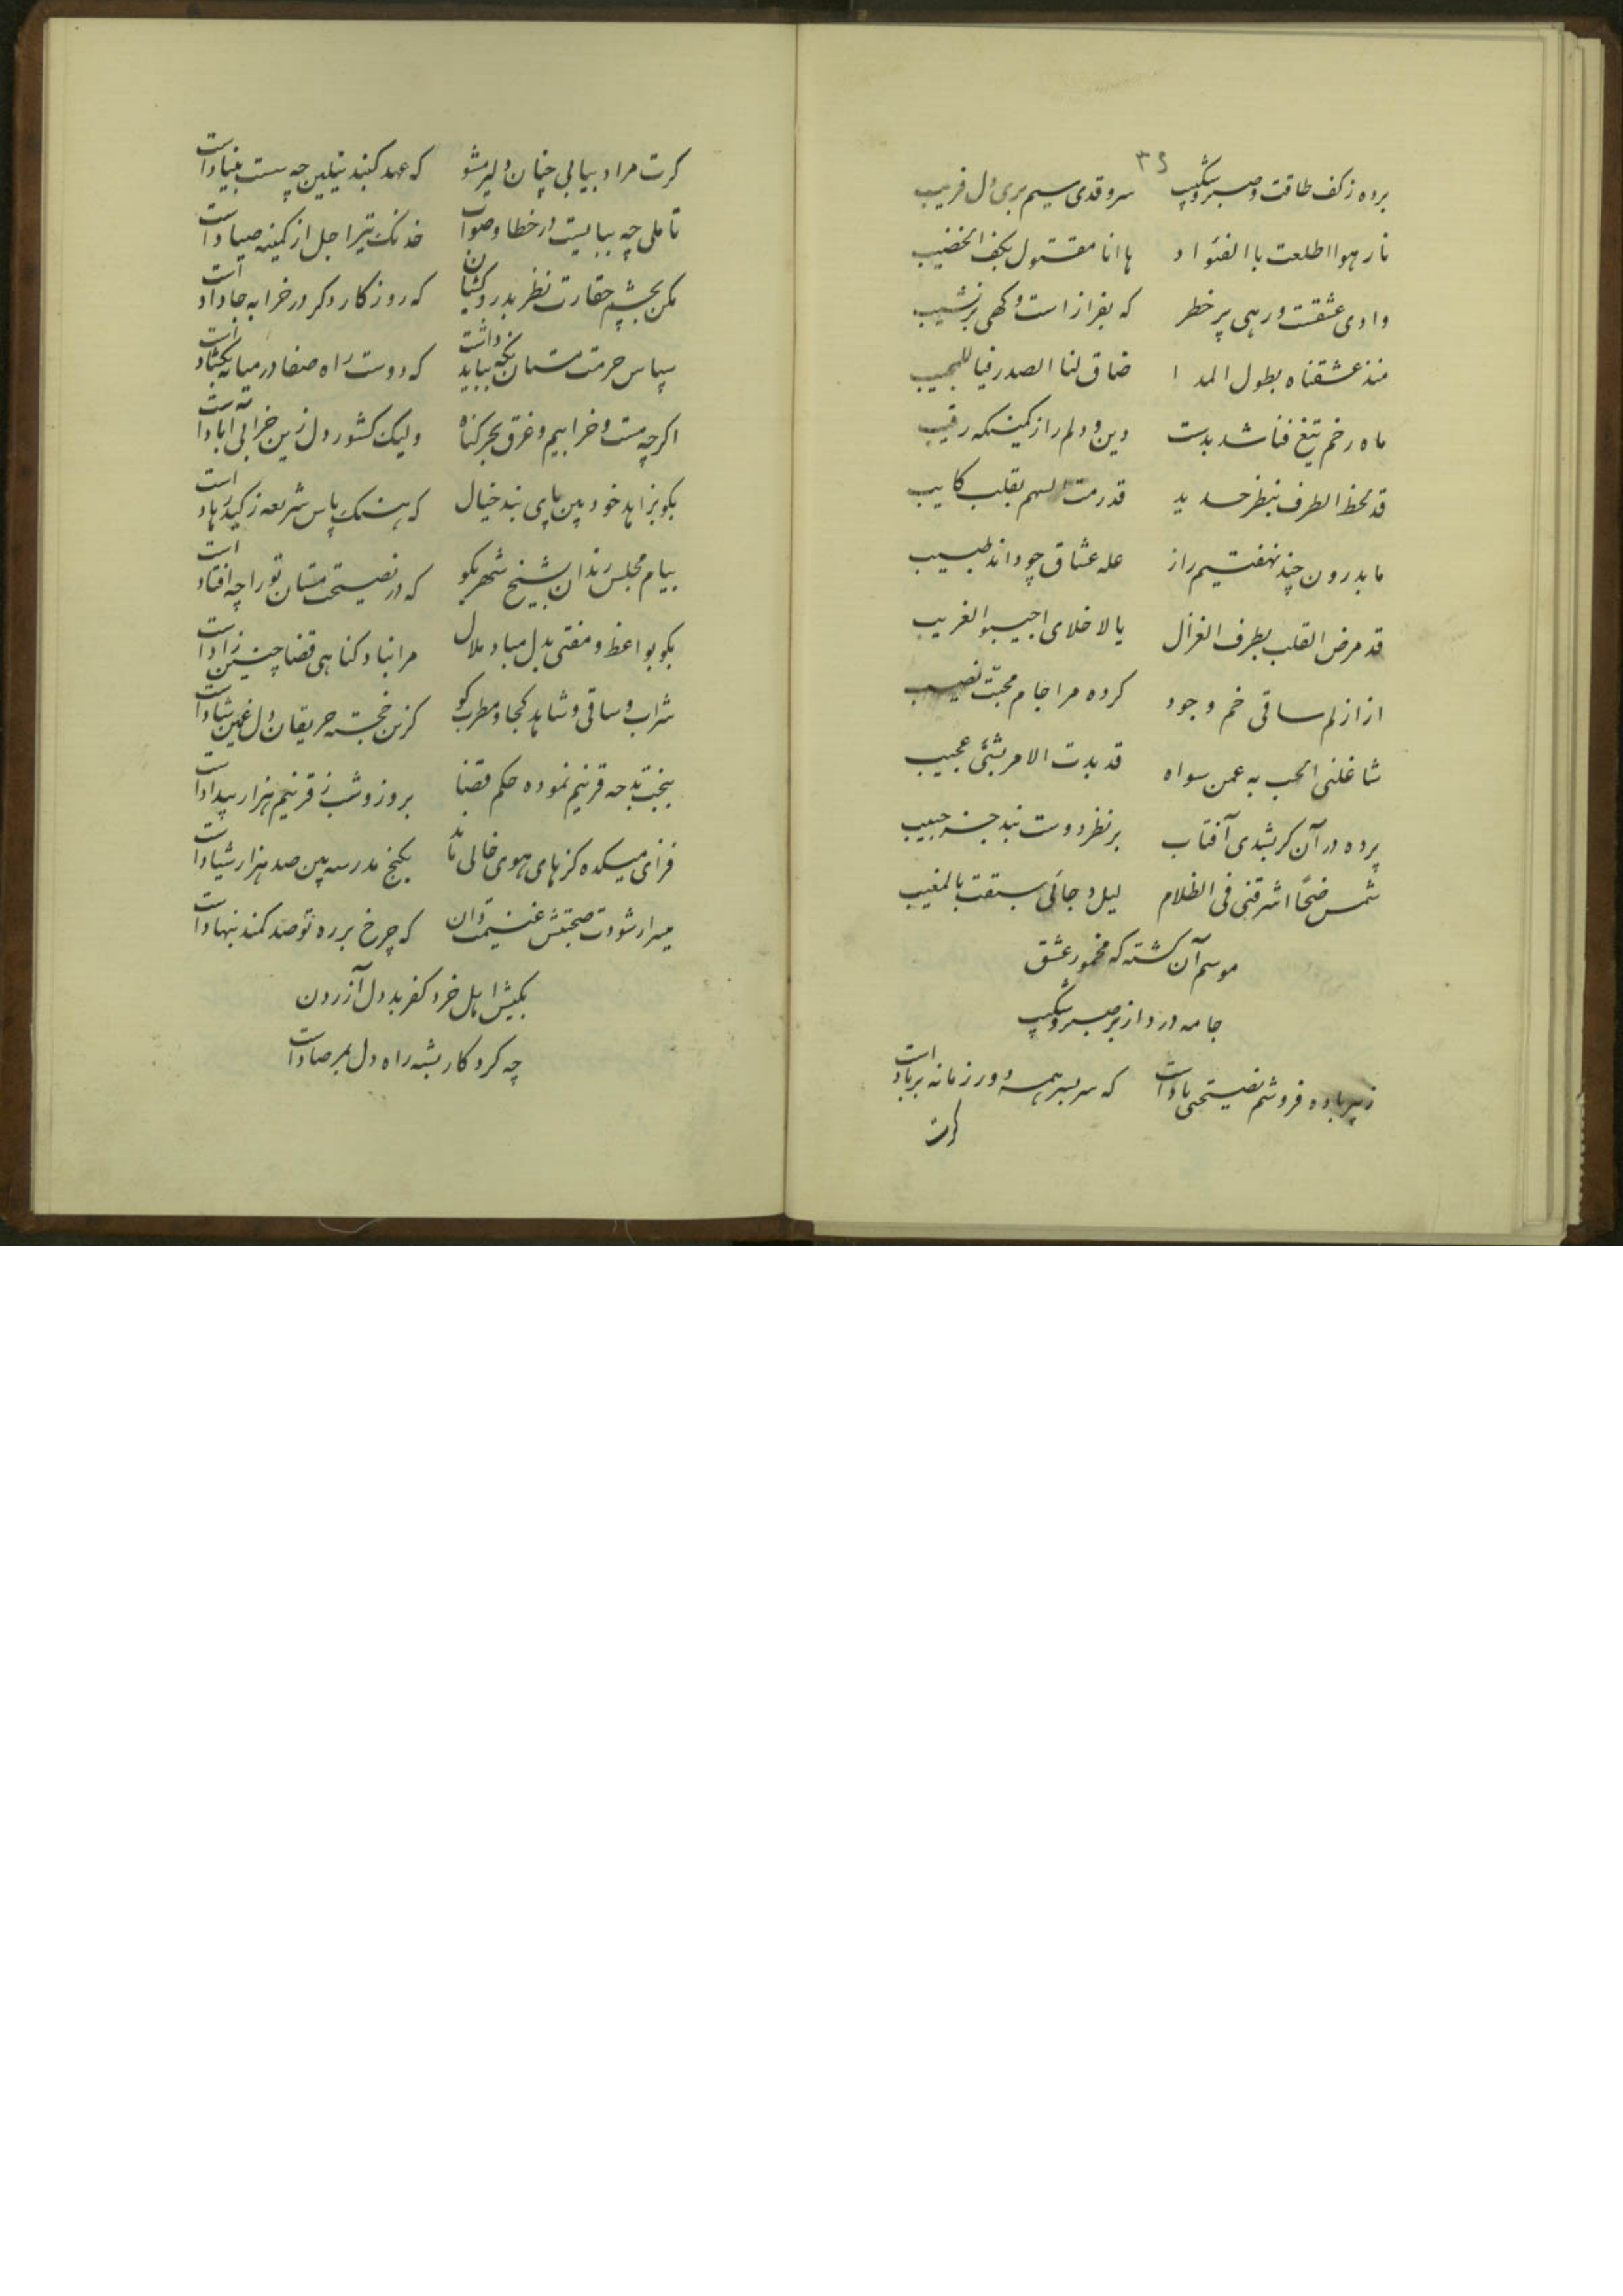 ۳۶
برده ز کف طاقت و صبر و شکیب سرو قدی سیم بری دل فریب
نار هوا اطلعت باالفئواد ها انا مقتول بکف الخضیب
وادی عشقست و رهی پر خطر که بفراز است و کهی بر نشیب
منذ عشقناه بطول المدا ضاق لنا الصدر فیا للمجیب
ماه رخم تیغ فنا شد بدست دین و دلم را ز کمینکه رقیب
قد لحظ الطرف بنظر حدید قد رمت السهم بقلب کایب
ما بدرون چند نهفتیم راز عله عشاق چو داند طبیب
قد مرض القلب بطرف الغزال یا لاخلای اجیبو الغریب
از ازلم ساقی خم وجود کرده مرا جام محبت نصیب
شاغلنی الحب به عمن سواه قد بدت الامر بشئی عجیب
پرده در آن کر بشدی آفتاب بر نظر دوست نبد جز حبیب
شمس ضحًا اشرقنی فی الظلام لیل دجائی سبقت بالمغیب
موسم آن کشته که مخمور عشق
جامه درد از بر صبر و شکیب
ز پیر باده فروشم نصیحتی یاد است که سر بسر همه دور زمانه بر باد است
کرت
کرت مراد بیابی چنان دلیر مشو که عهد کنبد نیلین چه سست بنیاد است
تاملی چه ببایست از خطا و صواب خدنک تیر اجل از کمینه صیاد است
مکن بچشم حقارت نظر بدرویشان که روزکار دکر در خرابه جا داد است
سپاس حرمت مستان نکه بباید داشت که دوست راه صفا در میانه بکشاد است
اکرچه مست و خرابیم و غرق بحر کناه ولیک کشور دل زین خرابی آباد است
بکو بزاهد خود بین پای بند خیال که هتک پاس شریعه ز کید زهاد است
بیام مجلس رندان بشیخ شهر بکو که در نصیحت مستان تو را چه افتاد است
بکو بواعظ و مفتی بدل مباد ملال مرا نباد کناهی قضا چنین زاد است
شراب و ساقی و شاهد کجا و مطرب کو کزین خجسته حریفان دل غمین شاد است
ببخت بد چه قرینم نموده حکم قضا بروز و شب ز قرینم هزار بیداد است
فزای میکده کز های هوی خالی ماند بکنج مدرسه بین صد هزار شیاد است
میسر ار شودت صحبتش غنیمت دان که چرخ بر ره تو صد کمند بنهاد است
بکیش اهل خرد کفر بد دل آزردن
چه کردکار بشه راه دل بمرصاد است